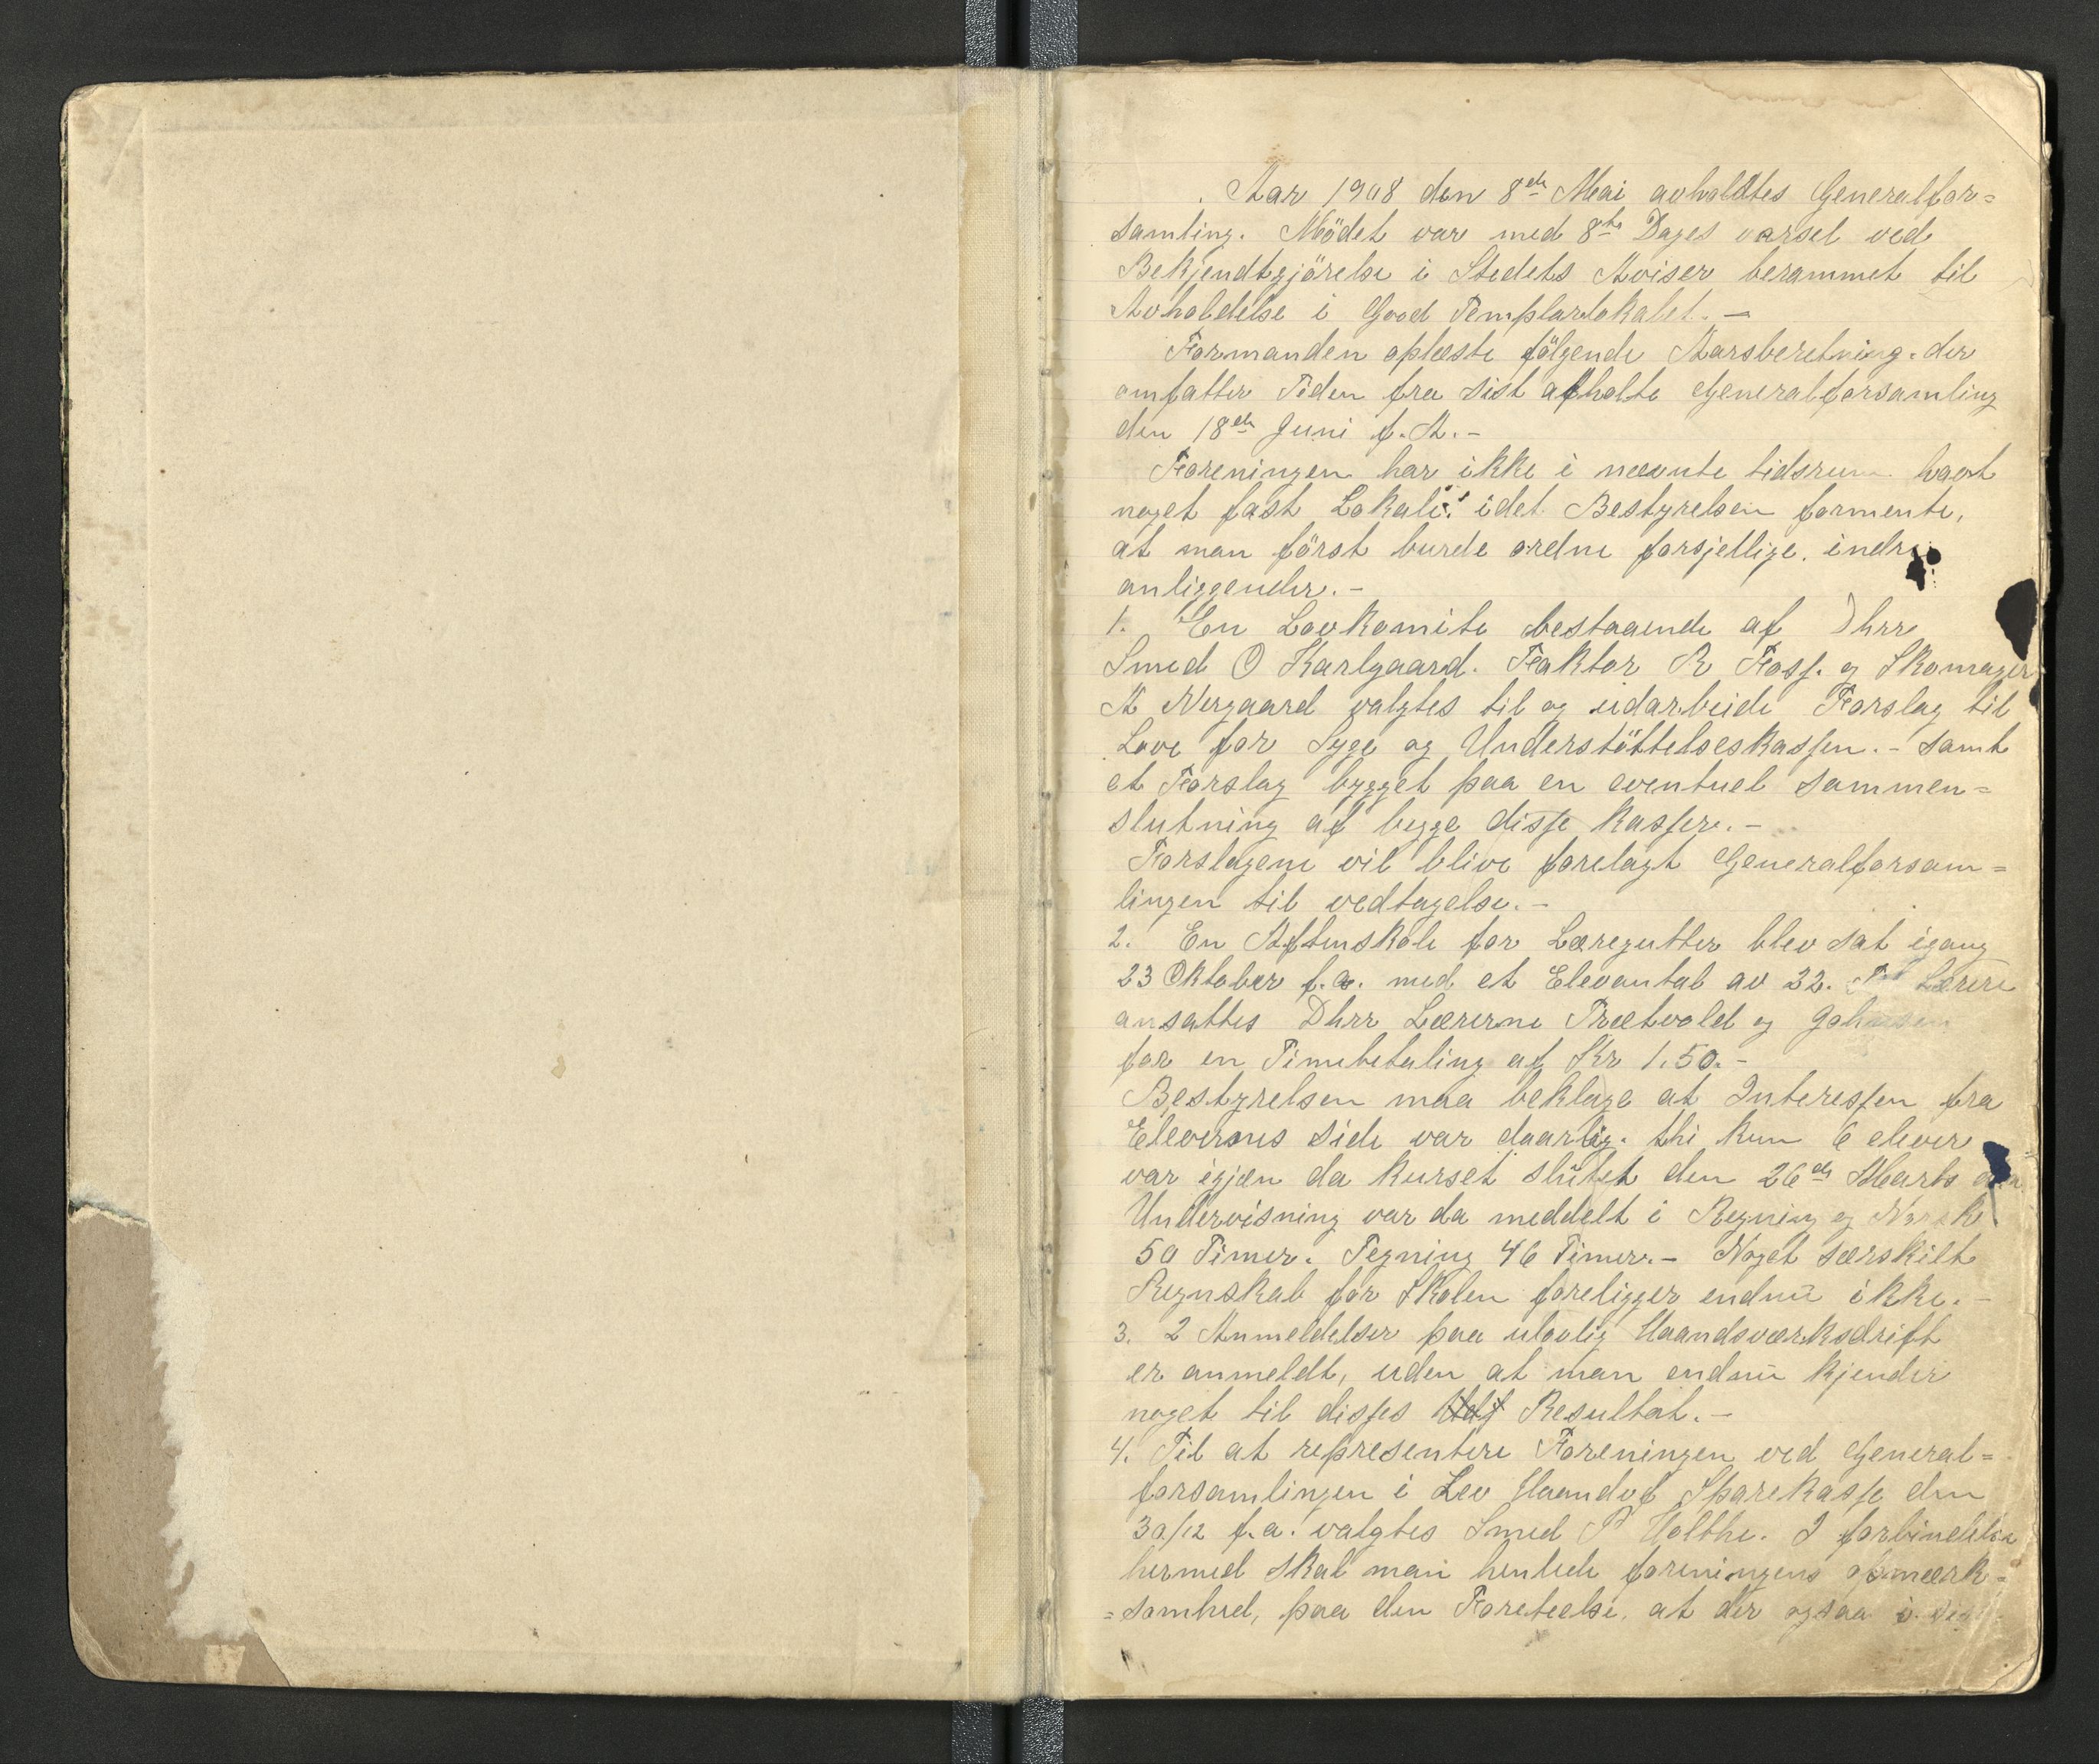 Aar 1908 den 8de Mai avholdtes Generalfor=
samling. Mödet var med 8te Dages varsel ved
Bekjendtgjörelse i Stedets Aviser berammet til
Avholdelse i Good Templarlokalet. —
Formanden oplæste fölgende Aarsberetning. der
omfatter Tiden fra sist afholte Generalforsamling
den 18de Juni f. A. -
Foreningen har ikke i nævnte tidsrum havt
noget fast Lokale. idet Bestyrelsen formente,
at man först burde ordne forsjellige. indre
anliggender. -
1. En Lovkomite bestaaende af Dhrr
Smed O Karlgaard. Faktor R Foss. og Skomager
A Nergaard valgtes til og udarbeide Forslag til
Love for Syge og Understöttelseskassen. - samt
et Forslag bygget paa en eventuel sammen=
slutning af begge disse kasser. -
Forslagene vil blive forelagt Generalforsam=
lingen til vedtagelse. -
2. En Aftenskole for Læregutter blev sat igang
23 Oktober f. a. med et Elevantal av 22. Lærere
ansattes Dhrr Lærerne Trætvold og
for en Timebetaling af Kr 1.50. -
Bestyrelsen maa beklage at Interessen fra
Elevernes side var daarlig. thi kun 6 elever
var igjen da kurset slutet den 26de Marts
Undervisning var da meddelt i Regning og Norsk
50 Timer. Tegning 46 Timer. - Noget særskilt
Regnskab for Skolen foreligger endnu ikke. -
3. 2 Anmeldelser paa ulovlig Haandsværksdrift
er anmeldt, uden at man endnu kjender
noget til disses Resultat. -
4. Til at representere Foreningen ved General=
forsamlingen i Lev Haandvf Sparekasse den
30/12 f. a. valgtes Smed P Holthe. I forbindelse
hermed skal man henlede foreningens opmærk=
=somhed, paa den Foreteelse, at der ogsaa i